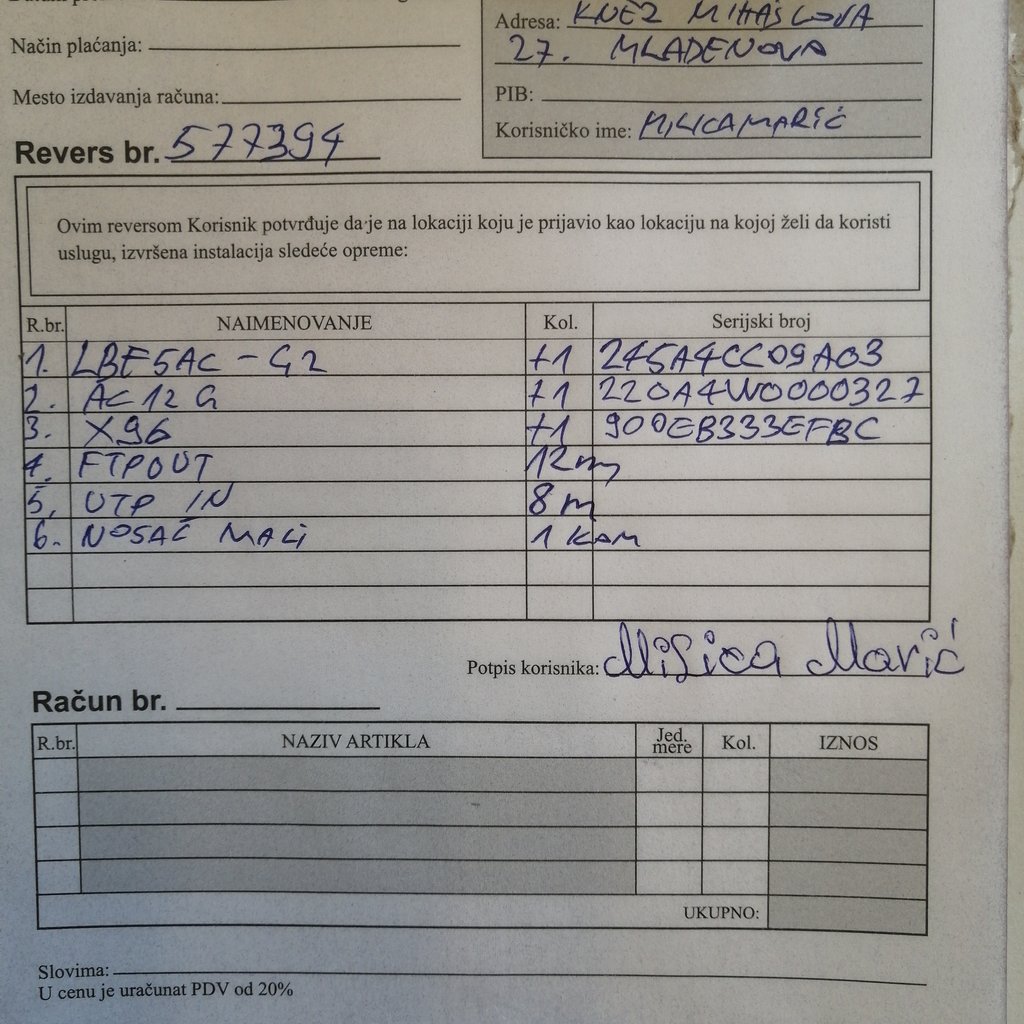 Način plaćanja:
Mesto izdavanja računa:
Adresa: KNEZ MIHAŠLOVA
27. MLADENOVA
PIB:
Korisničko ime: MILICAMARIĆ
Revers br. 577394
Ovim reversom Korisnik potvrđuje da je na lokaciji koju je prijavio kao lokaciju na kojoj želi da koristi
uslugu, izvršena instalacija sledeće opreme:
R.br. NAIMENOVANJE Kol. Serijski broj
1. LBE5AC-G2 +1 245A4CC09A03
2. AC12G +1 220A4W0000327
3. X96 +1 900EB333EFBC
4. FTPOUT 12m
5, UTP IN 8m
6. NOSAČ MALI 1 KOM
Potpis korisnika: Milica Marić
Račun br.
R.br. NAZIV ARTIKLA Jed. mere Kol. IZNOS
UKUPNO:
Slovima:
U cenu je uračunat PDV od 20%